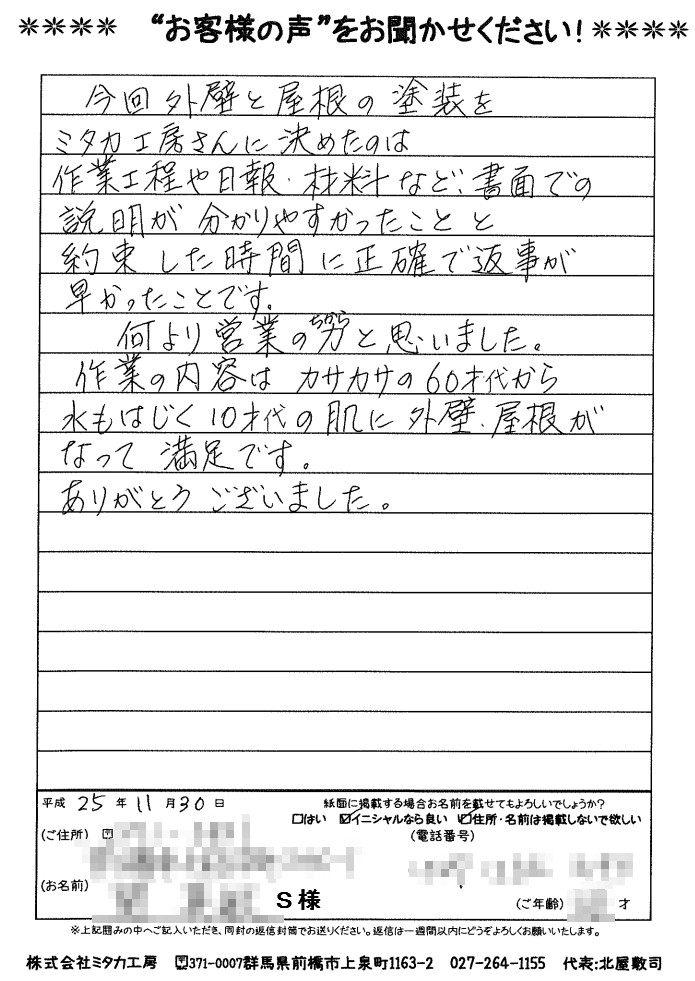 **** “お客様の声”をお聞かせください! ****
今回外壁と屋根の塗装を
ミタカ工房さんに決めたのは
作業工程や日報・材料など、書面での
説明が分かりやすかったことと
約束した時間に正確で返事が
早かったことです。
何より営業の労と思いました。
ちから
作業の内容はカサカサの60才代から
水もはじく10才代の肌に外壁・屋根が
なって満足です。
ありがとうございました。
平成 25 年 11 月 30 日
紙面に掲載する場合お名前を載せてもよろしいでしょうか?
□はい ☑イニシャルなら良い ☑住所・名前は掲載しないで欲しい
(ご住所) 〒
(電話番号)
(お名前) S様
(ご年齢) 才
※上記囲みの中へご記入いただき、同封の返信封筒でお送りください。返信は一週間以内にどうぞよろしくお願いいたします。
株式会社ミタカ工房 〒371-0007群馬県前橋市上泉町1163-2 027-264-1155 代表:北屋敷司